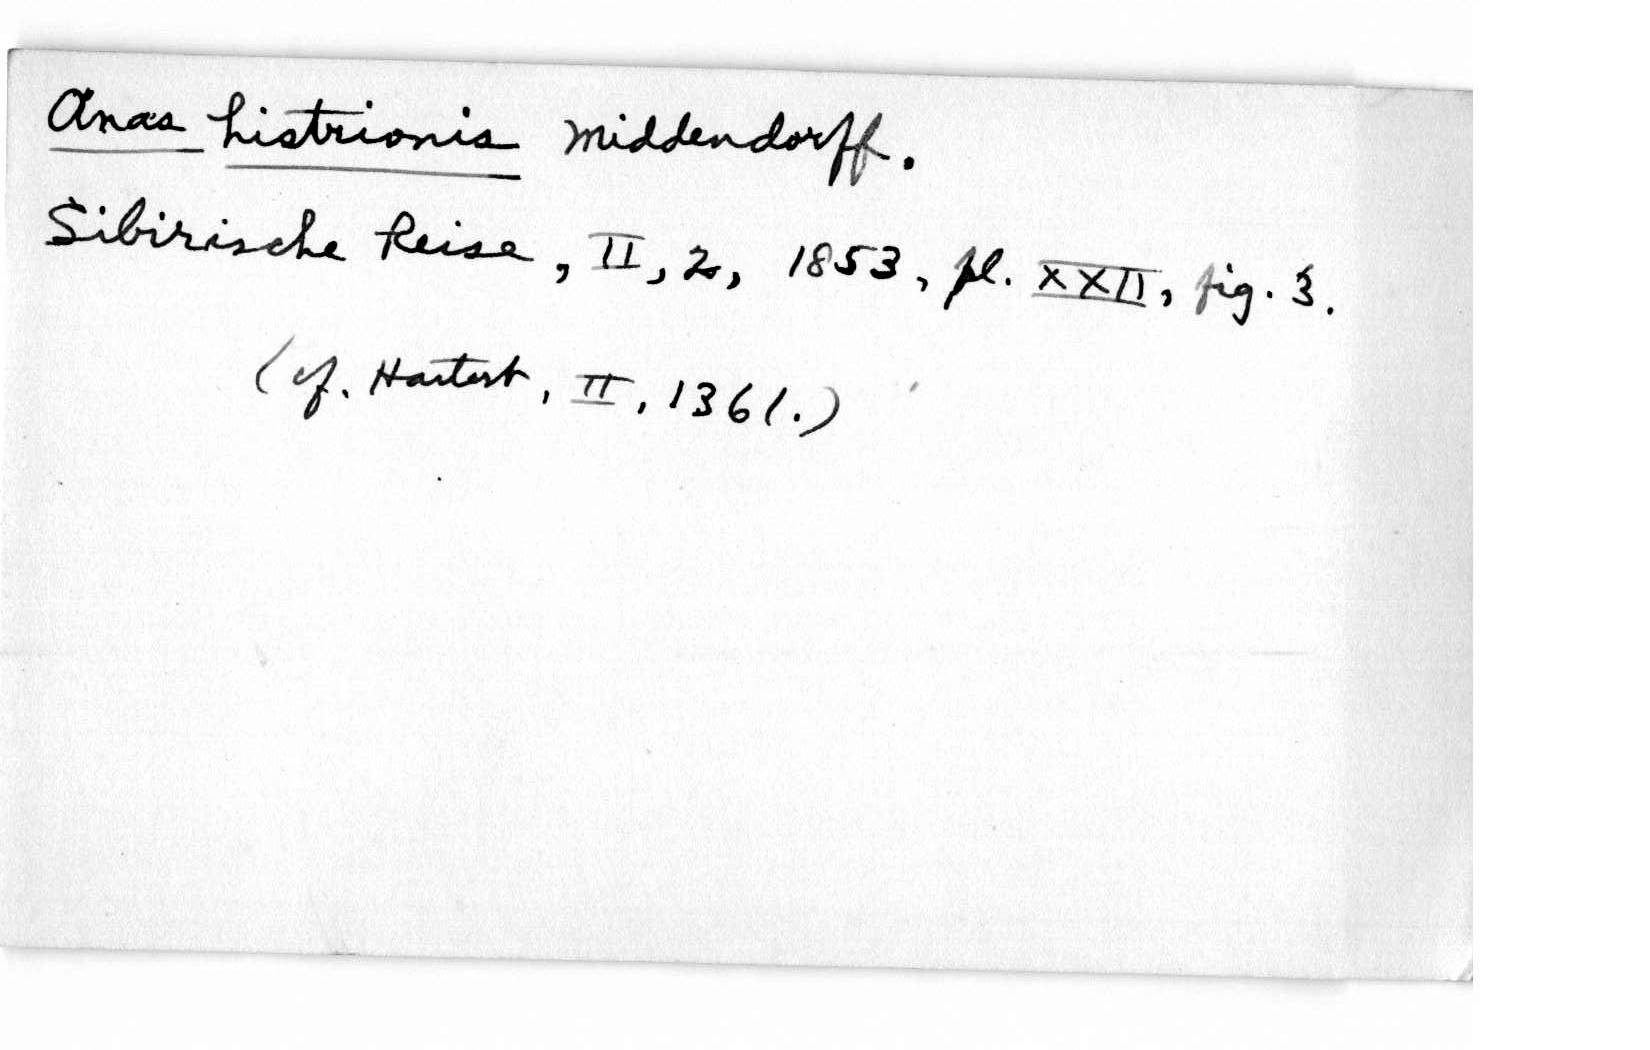 Anas histrionis Middendorff.
Sibirische Reise, II, 2, 1853, pl. XXII, fig. 3.
(cf. Hartert, II, 1361.)